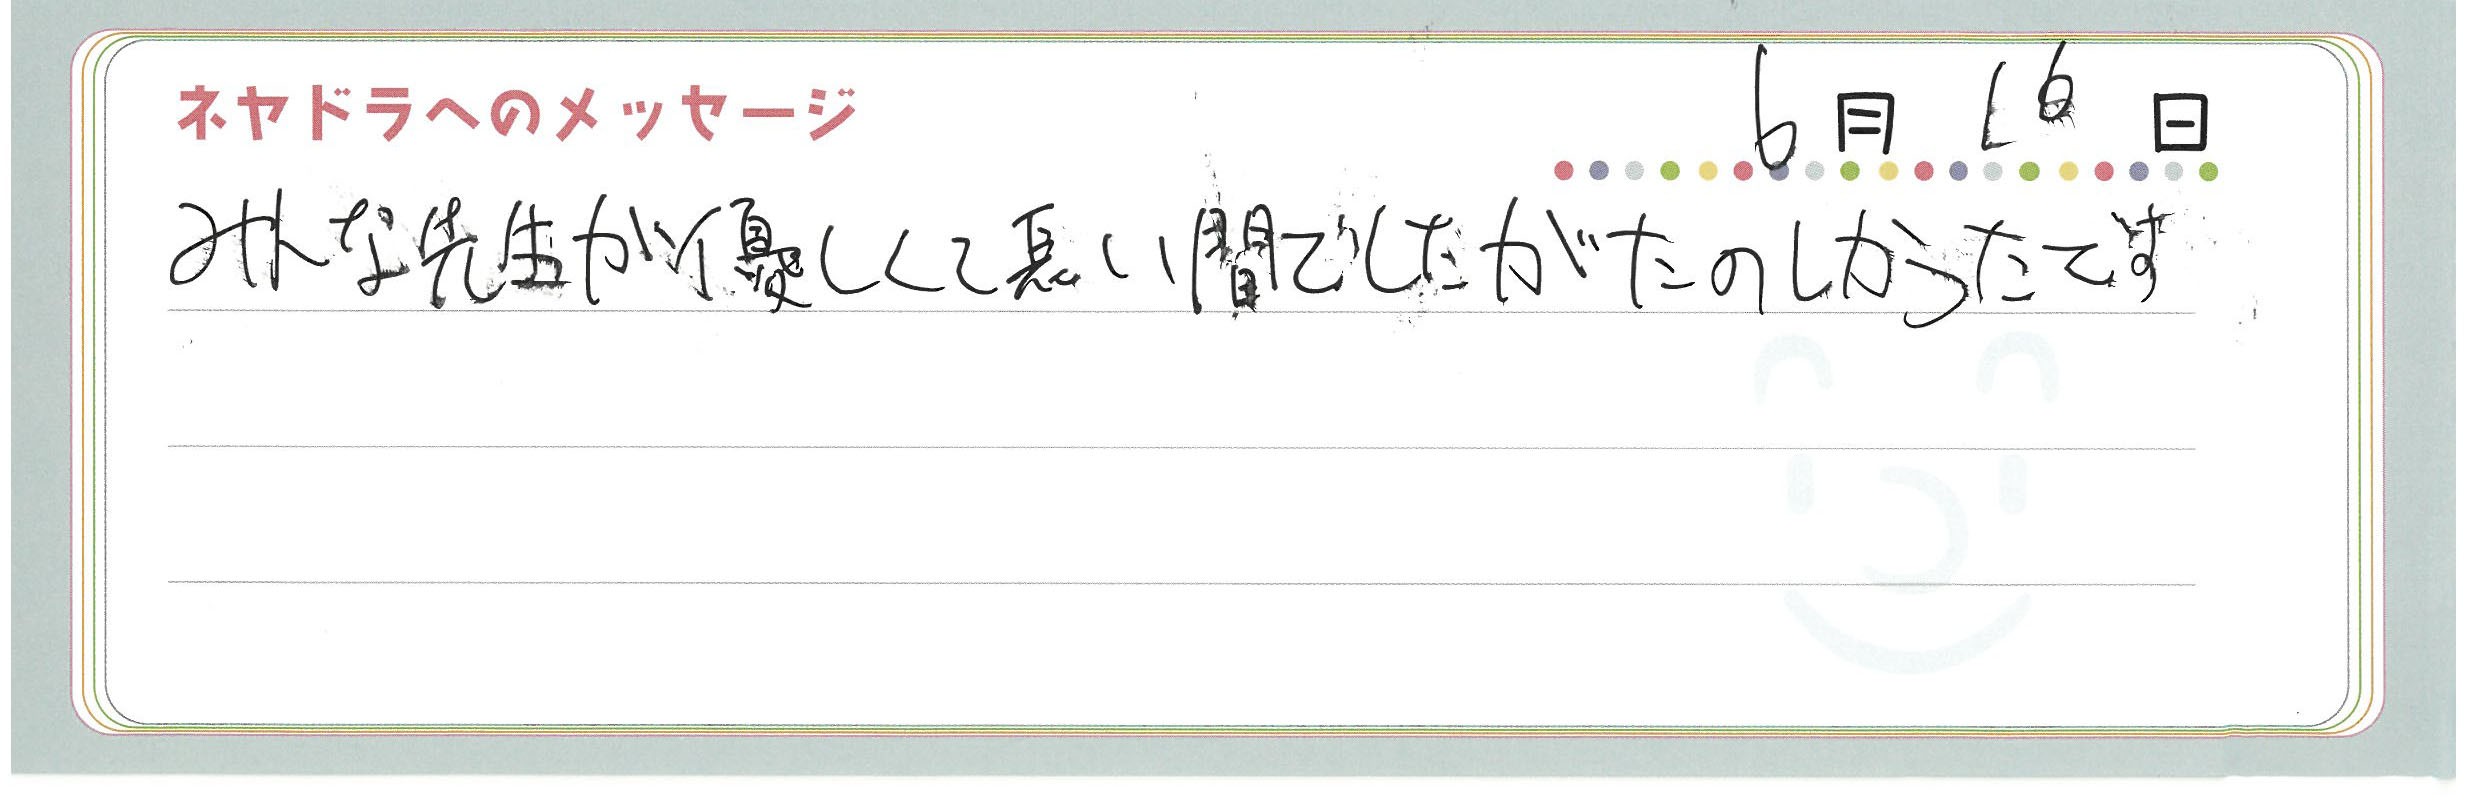 ネヤドラへのメッセージ
6月16日
みんな先生が優しくて長い間でしたがたのしかったです